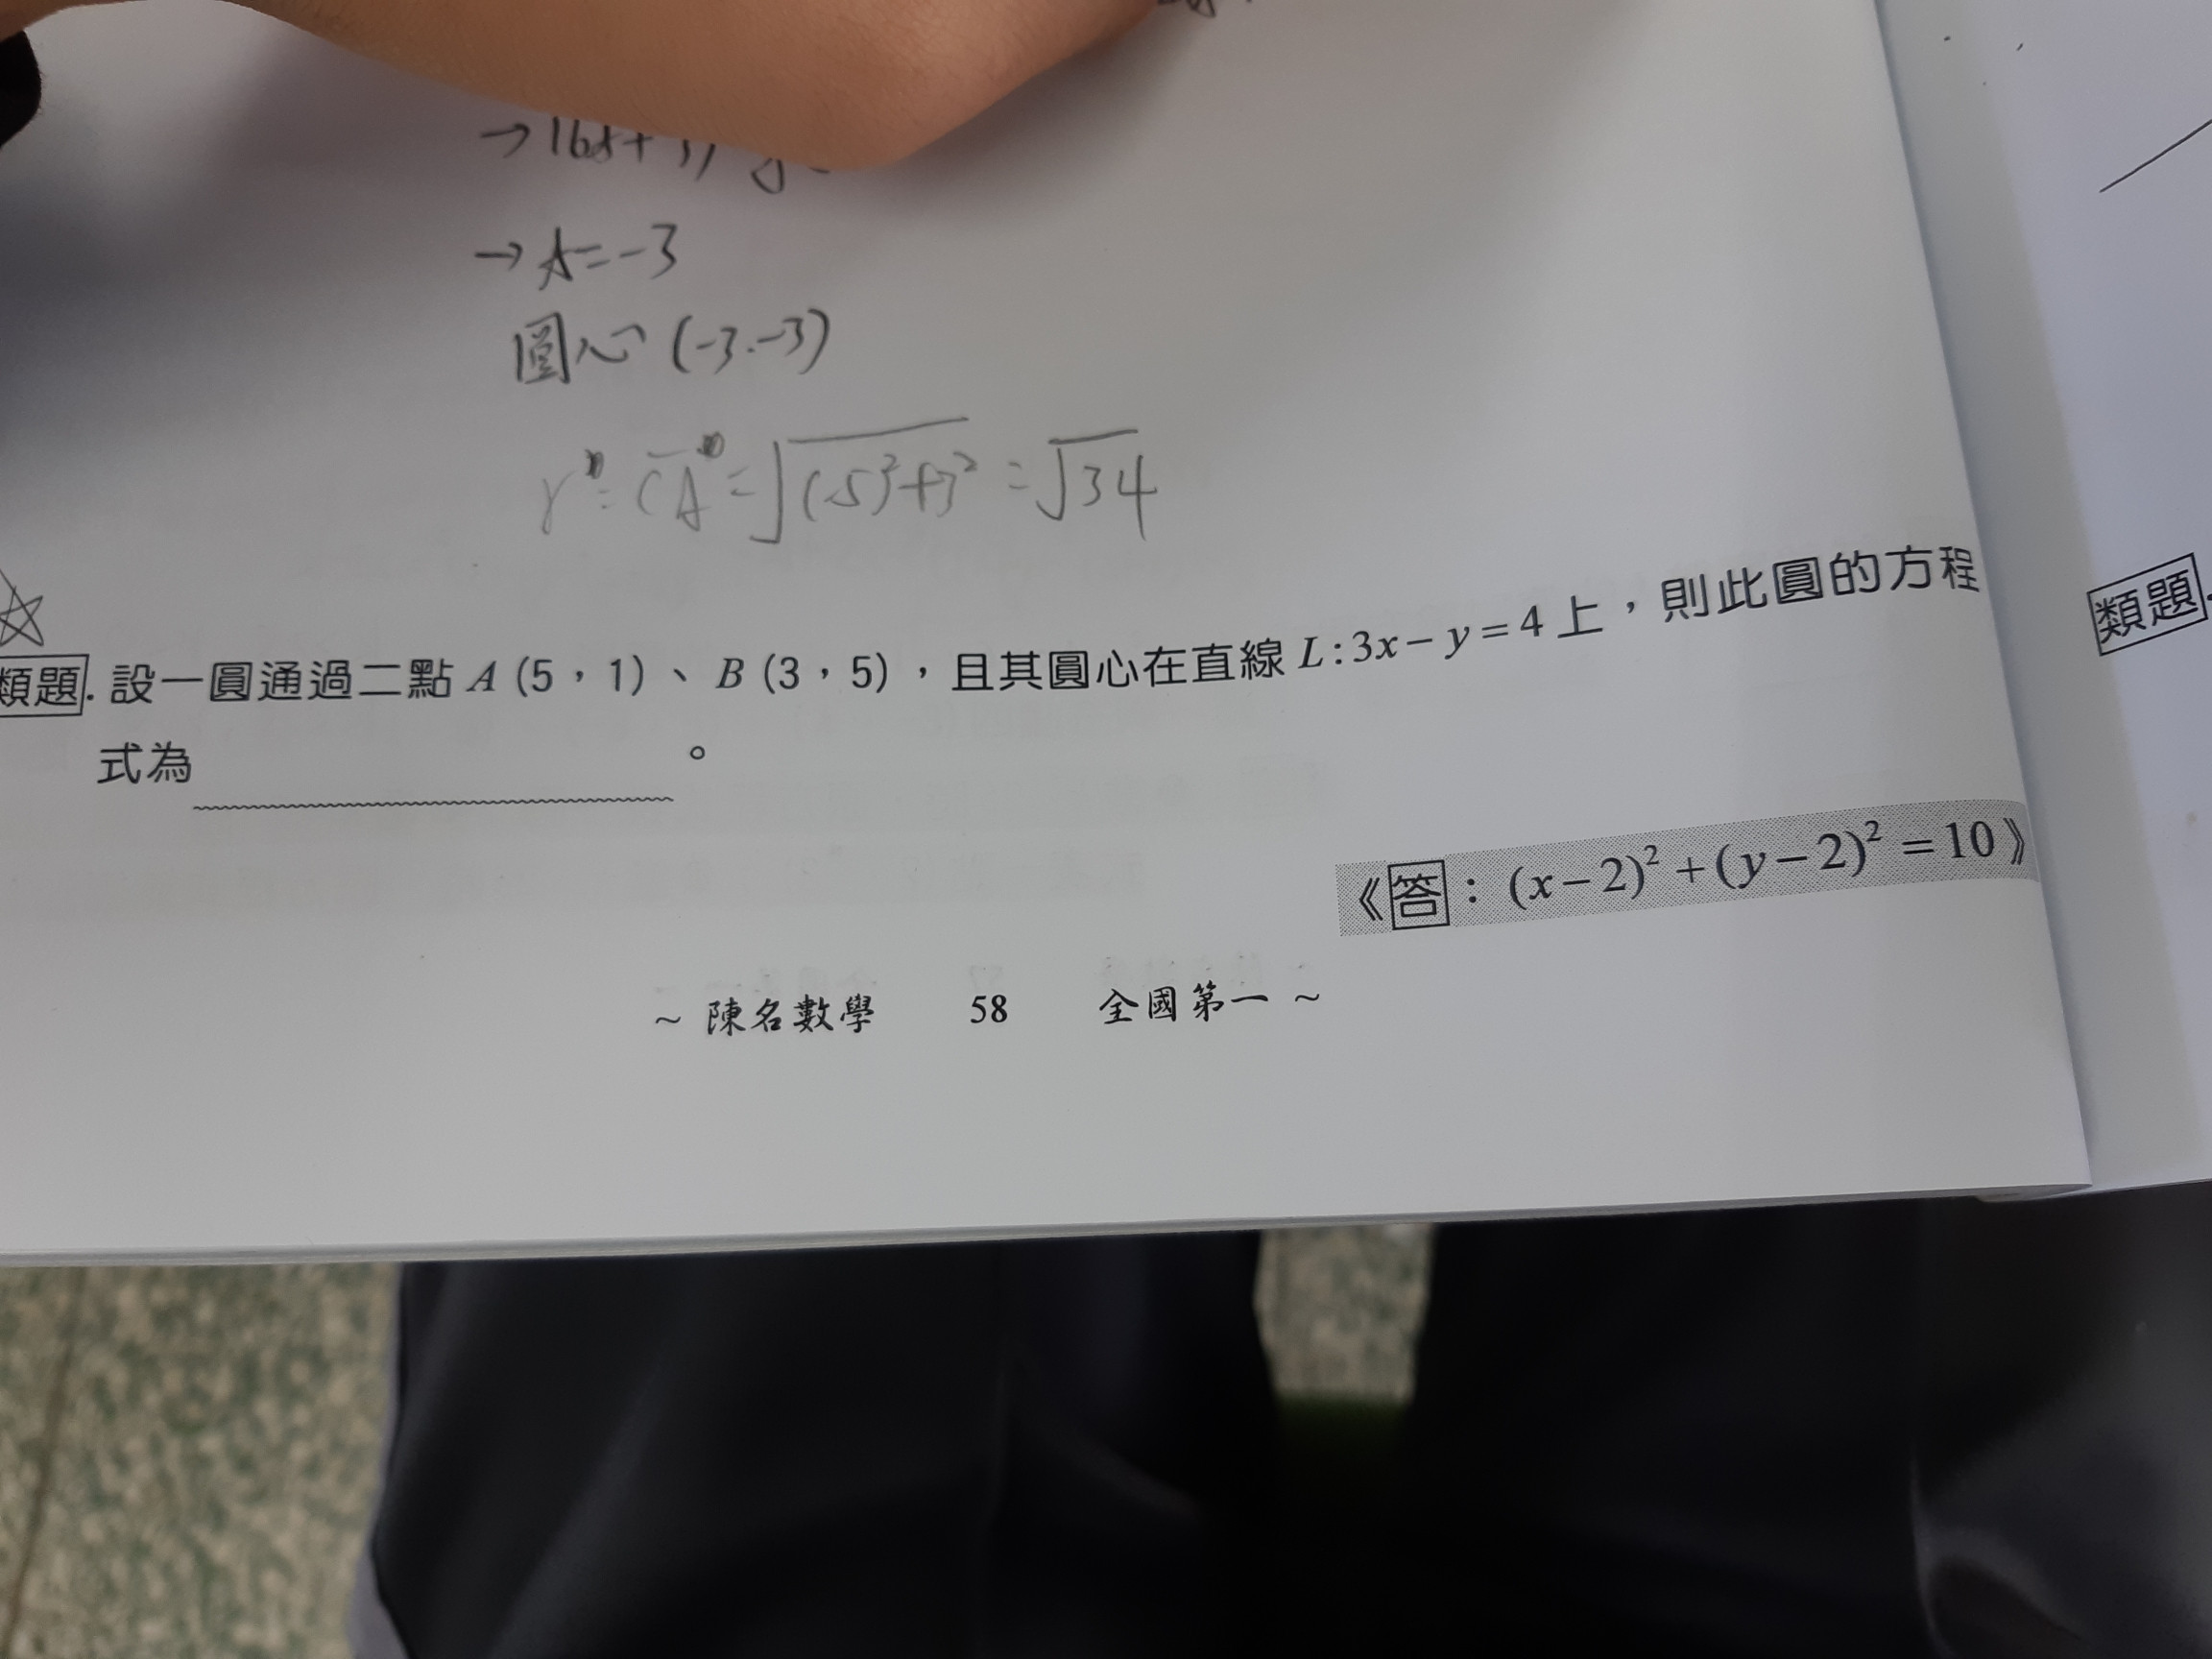 → 16
→ t=-3
圓心 (-3.-3)
r = CA = √(-5)²+3² = √34
類題. 設一圓通過二點 A (5,1)、B (3,5),且其圓心在直線 L:3x-y=4 上,則此圓的方程
式為 。
《答:(x-2)²+(y-2)²=10》
~ 陳名數學 58 全國第一 ~
類題.